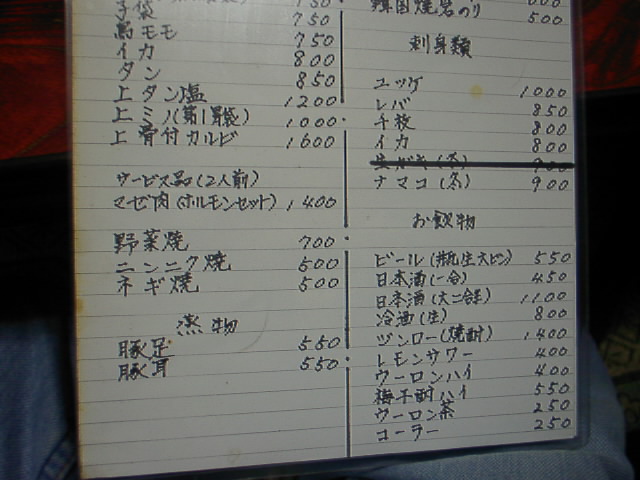 子袋 750
高モモ 750
イカ 800
タン 850
上タン塩 1200
上ミノ(第1胃袋) 1000
上骨付カルビ 1600
サービス品(2人前)
マーゼ肉(ホルモンセット) 1,400
野菜焼 700
ニンニク焼 500
ネギ焼 500
蒸物
豚足 550
豚耳 550
韓国焼岩のり 500
刺身類
ユッケ 1000
レバ 850
千枚 800
イカ 800
生ガキ(冬) 900
ナマコ(冬) 900
お飲物
ビール(瓶,生大ビン) 550
日本酒(一合) 450
日本酒(大二合半) 1100
冷酒(生) 800
ヅンロー(焼酎) 1400
レモンサワー 400
ウーロンハイ 400
梅干酎ハイ 550
ウーロン茶 250
コーラー 250